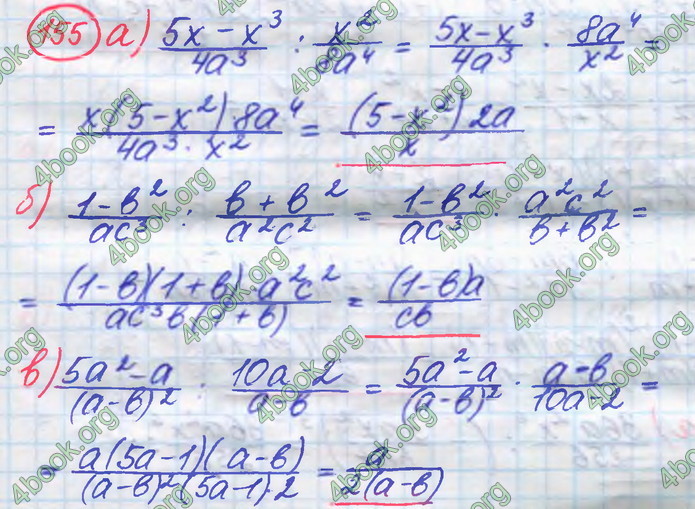 155 а) (5x - x³)/(4a³) : x²/(8a⁴) = (5x - x³)/(4a³) · (8a⁴)/(x²) =
= (x(5 - x²) 8a⁴)/(4a³ · x²) = ((5 - x²) 2a)/x
б) (1 - в²)/(ac³) : (в + в²)/(a²c²) = (1 - в²)/(ac³) · (a²c²)/(в + в²) =
= ((1 - в)(1 + в) · a²c²)/(ac³в(1 + в)) = ((1 - в)a)/(cв)
в) (5a² - a)/((a - в)²) : (10a - 2)/(a - в) = (5a² - a)/((a - в)²) · (a - в)/(10a - 2) =
= (a(5a - 1)(a - в))/((a - в)²(5a - 1) · 2) = a/(2(a - в))
4book.org